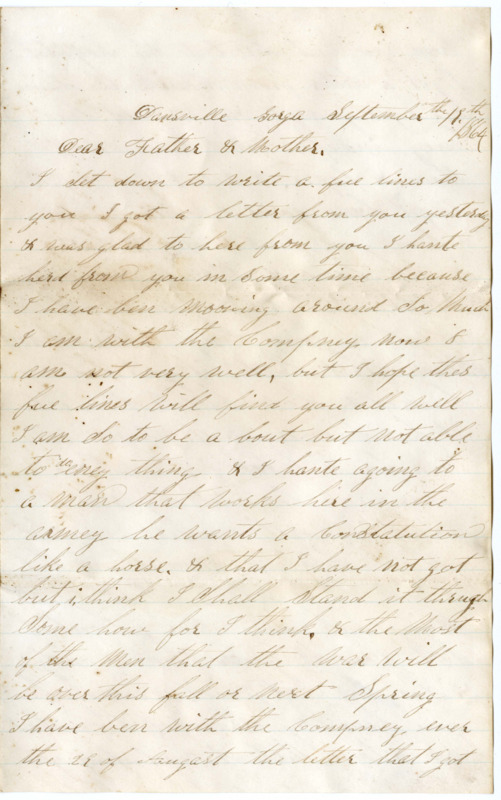 Dansville Gorga September the 18th
1864
Dear Father & Mother.
I set down to write a fue lines to
you I got a letter from you yesterday
& was glad to here from you I hante
herd from you in Some time because
I have ben mooving around So Much
I am with the Compney now &
am not very well, but I hope thes
fue lines Will find you all well
I am So to be a bout but not able
to eney thing & I hante agoing to
a man that works here in the
armey he wants a Constatution
like a horse. & that I have not got
but i think I Shall Stand it through
Some how for I think, & the Most
of the Men that the War Will
be over this fall or Next Spring
I have ben with the Compney ever
the 28 of Augast the letter that I got